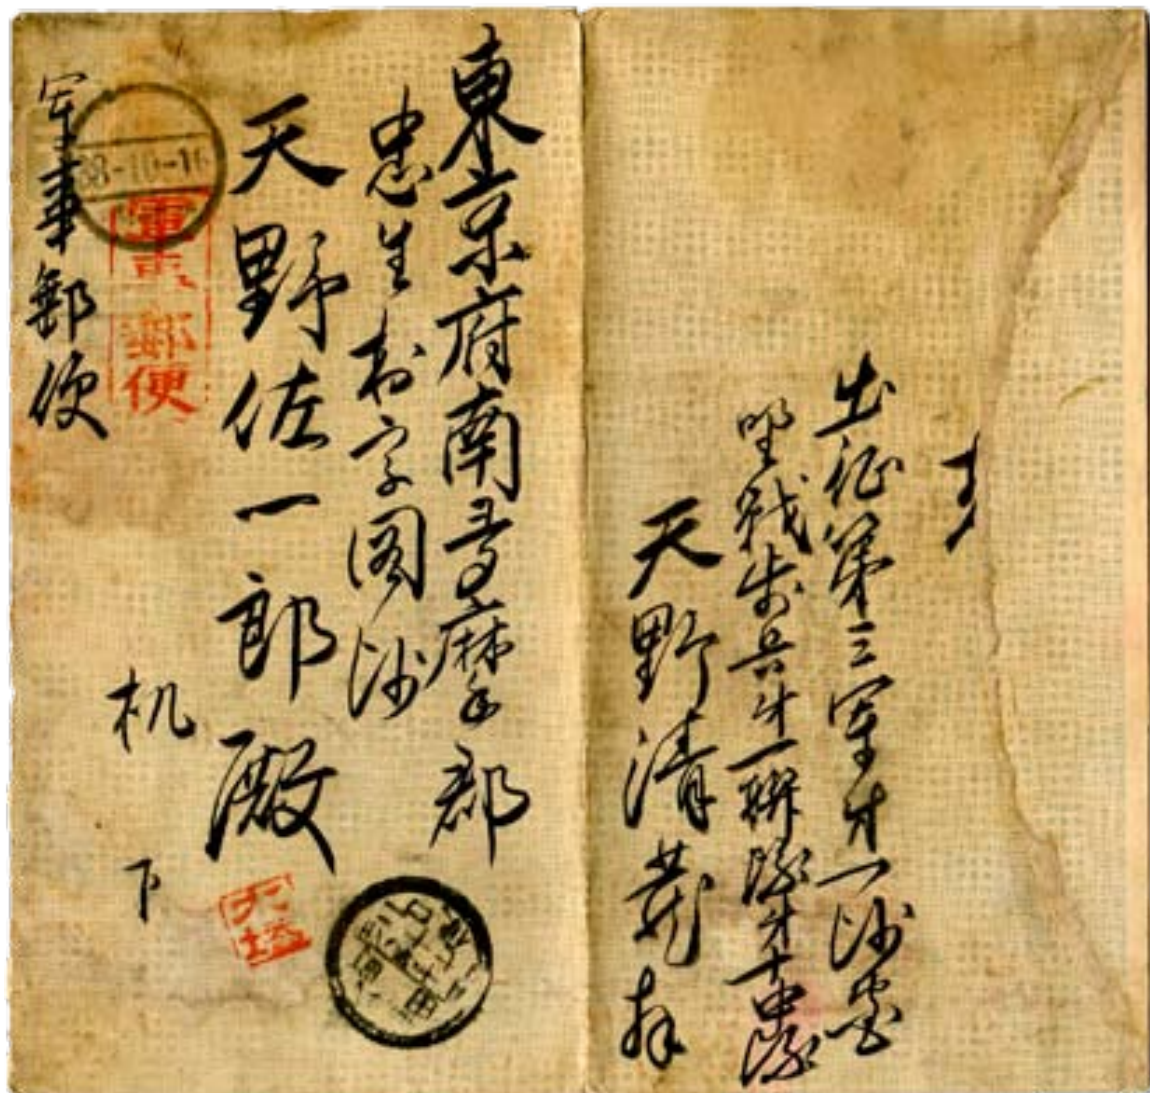 東京府南多摩郡
忠生村字図師
天野佐一郎殿
机下
軍事郵便
軍事郵便
38-10-16
出征第三軍才一師団
野戦歩兵才一聯隊才十中隊
天野清